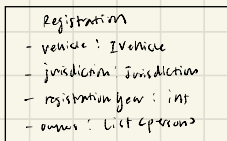 Registration
- vehicle : IVehicle
- jurisdiction : Jurisdiction
- registration Year : int
- owner : List <person>